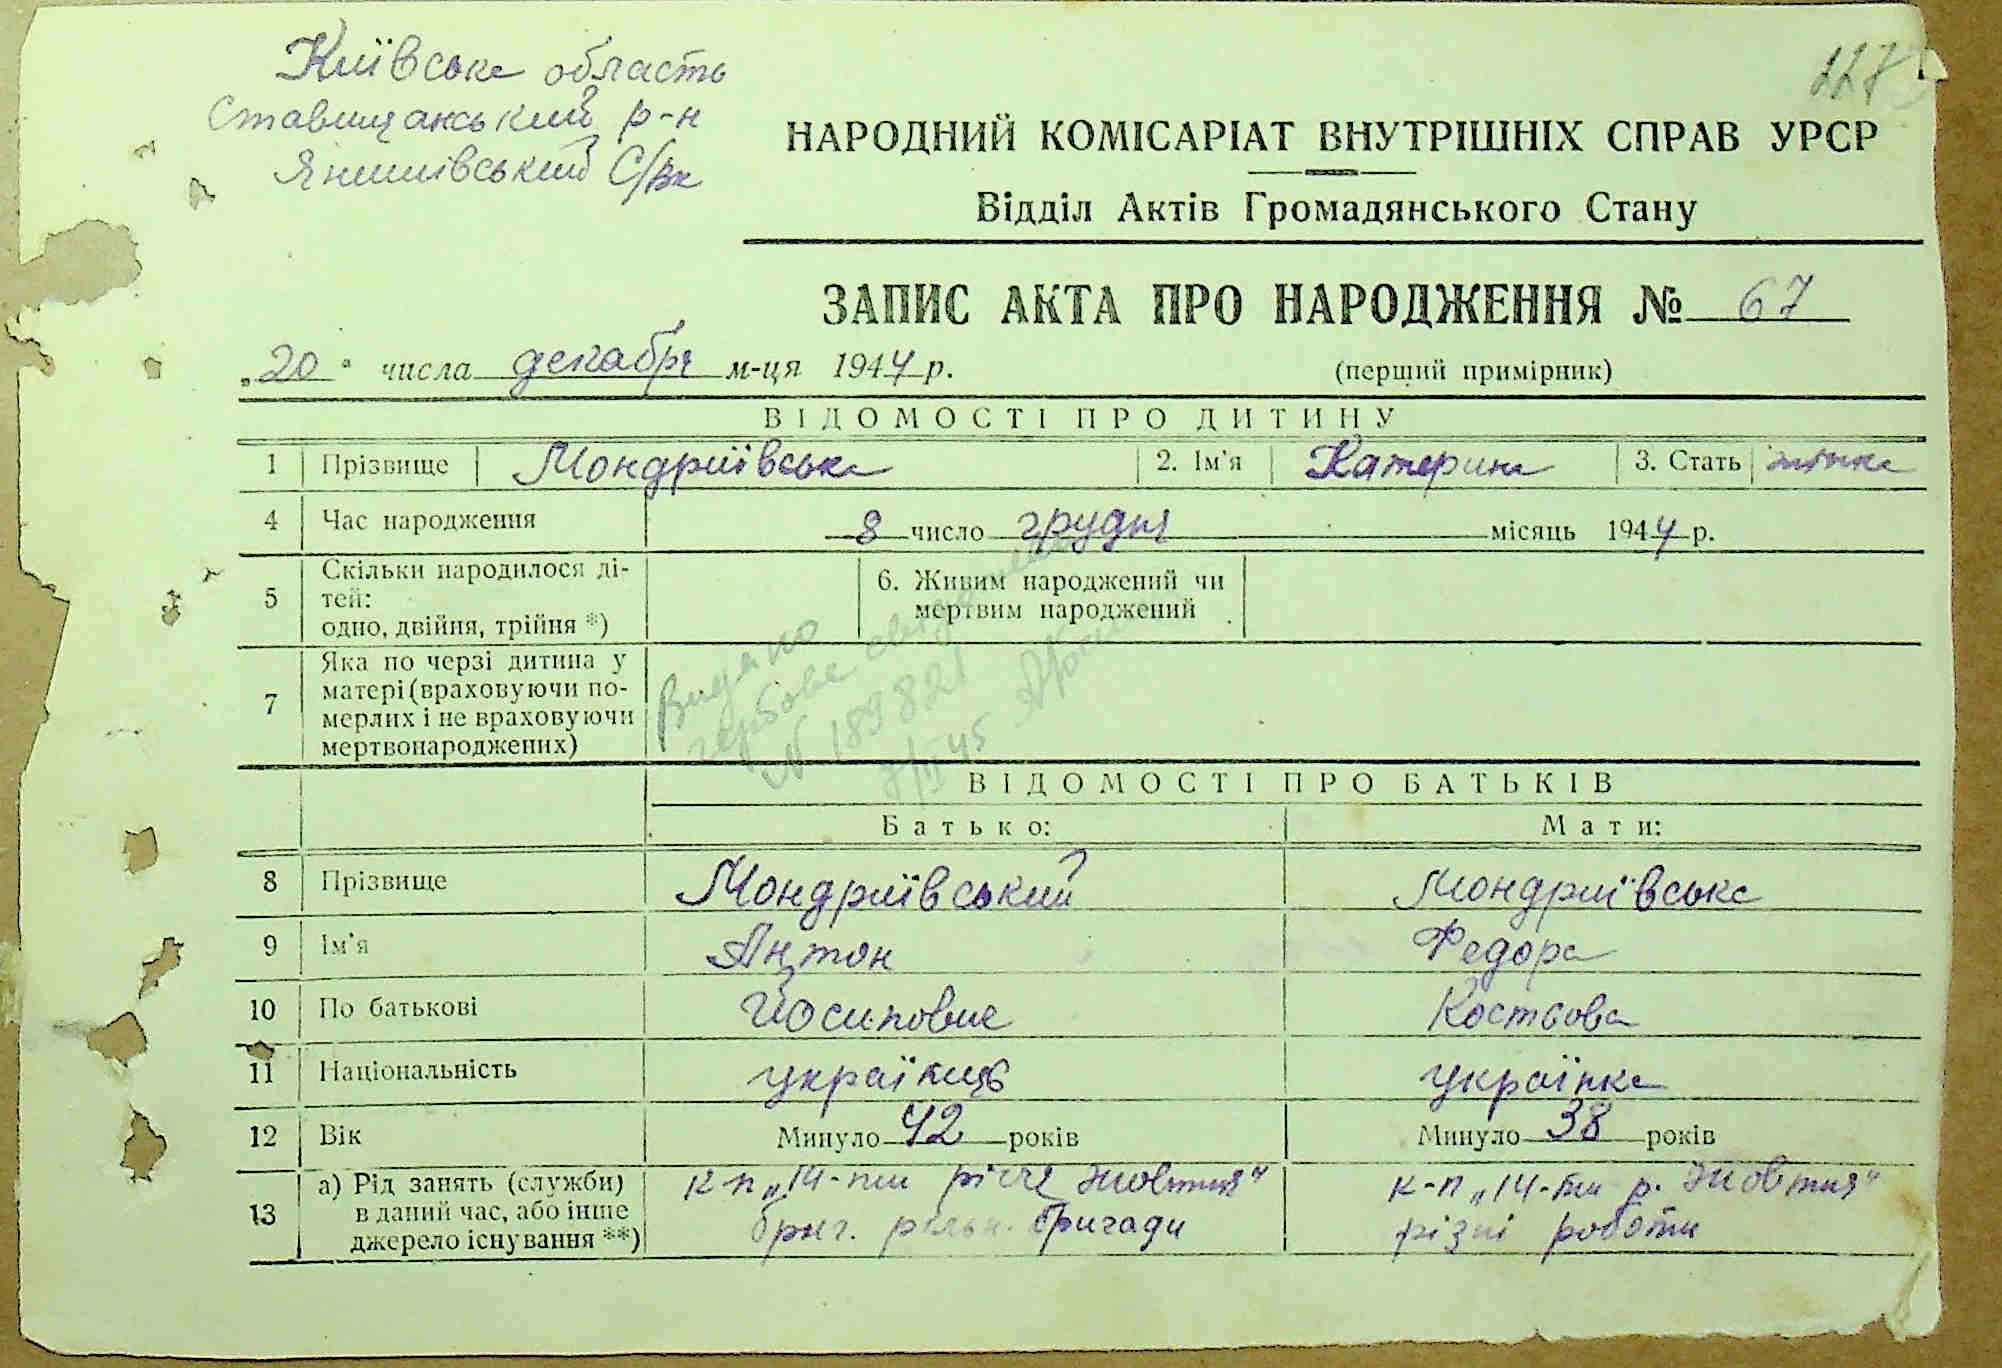 Київська область
Ставищанський р-н
Янишівський С/вк
227
НАРОДНИЙ КОМІСАРІАТ ВНУТРІШНІХ СПРАВ УРСР
Відділ Актів Громадянського Стану
ЗАПИС АКТА ПРО НАРОДЖЕННЯ № 67
„20" числа декабря м-ця 1944 р. (перший примірник)
ВІДОМОСТІ ПРО ДИТИНУ
1 Прізвище Мондриївська 2. Ім'я Катерина 3. Стать жінка
4 Час народження 8 число грудня місяць 1944 р.
5 Скільки народилося ді-
тей:
одно, двійня, трійня *)
6. Живим народжений чи
мертвим народжений
7 Яка по черзі дитина у
матері (враховуючи по-
мерлих і не враховуючи
мертвонароджених)
Видано
гербове
N 189821
7/ІІ 45
ВІДОМОСТІ ПРО БАТЬКІВ
Батько: Мати:
8 Прізвище Мондриївський Мондриївська
9 Ім'я Антон Федора
10 По батькові Йосипович Костьова
11 Національність українць українка
12 Вік Минуло 42 років Минуло 38 років
13 а) Рід занять (служби)
в даний час, або інше
джерело існування **)
к-п „14-ти річчя Жовтня"
бриг. рільн. бригади
к-п „14-ти р. Жовтня"
різні роботи